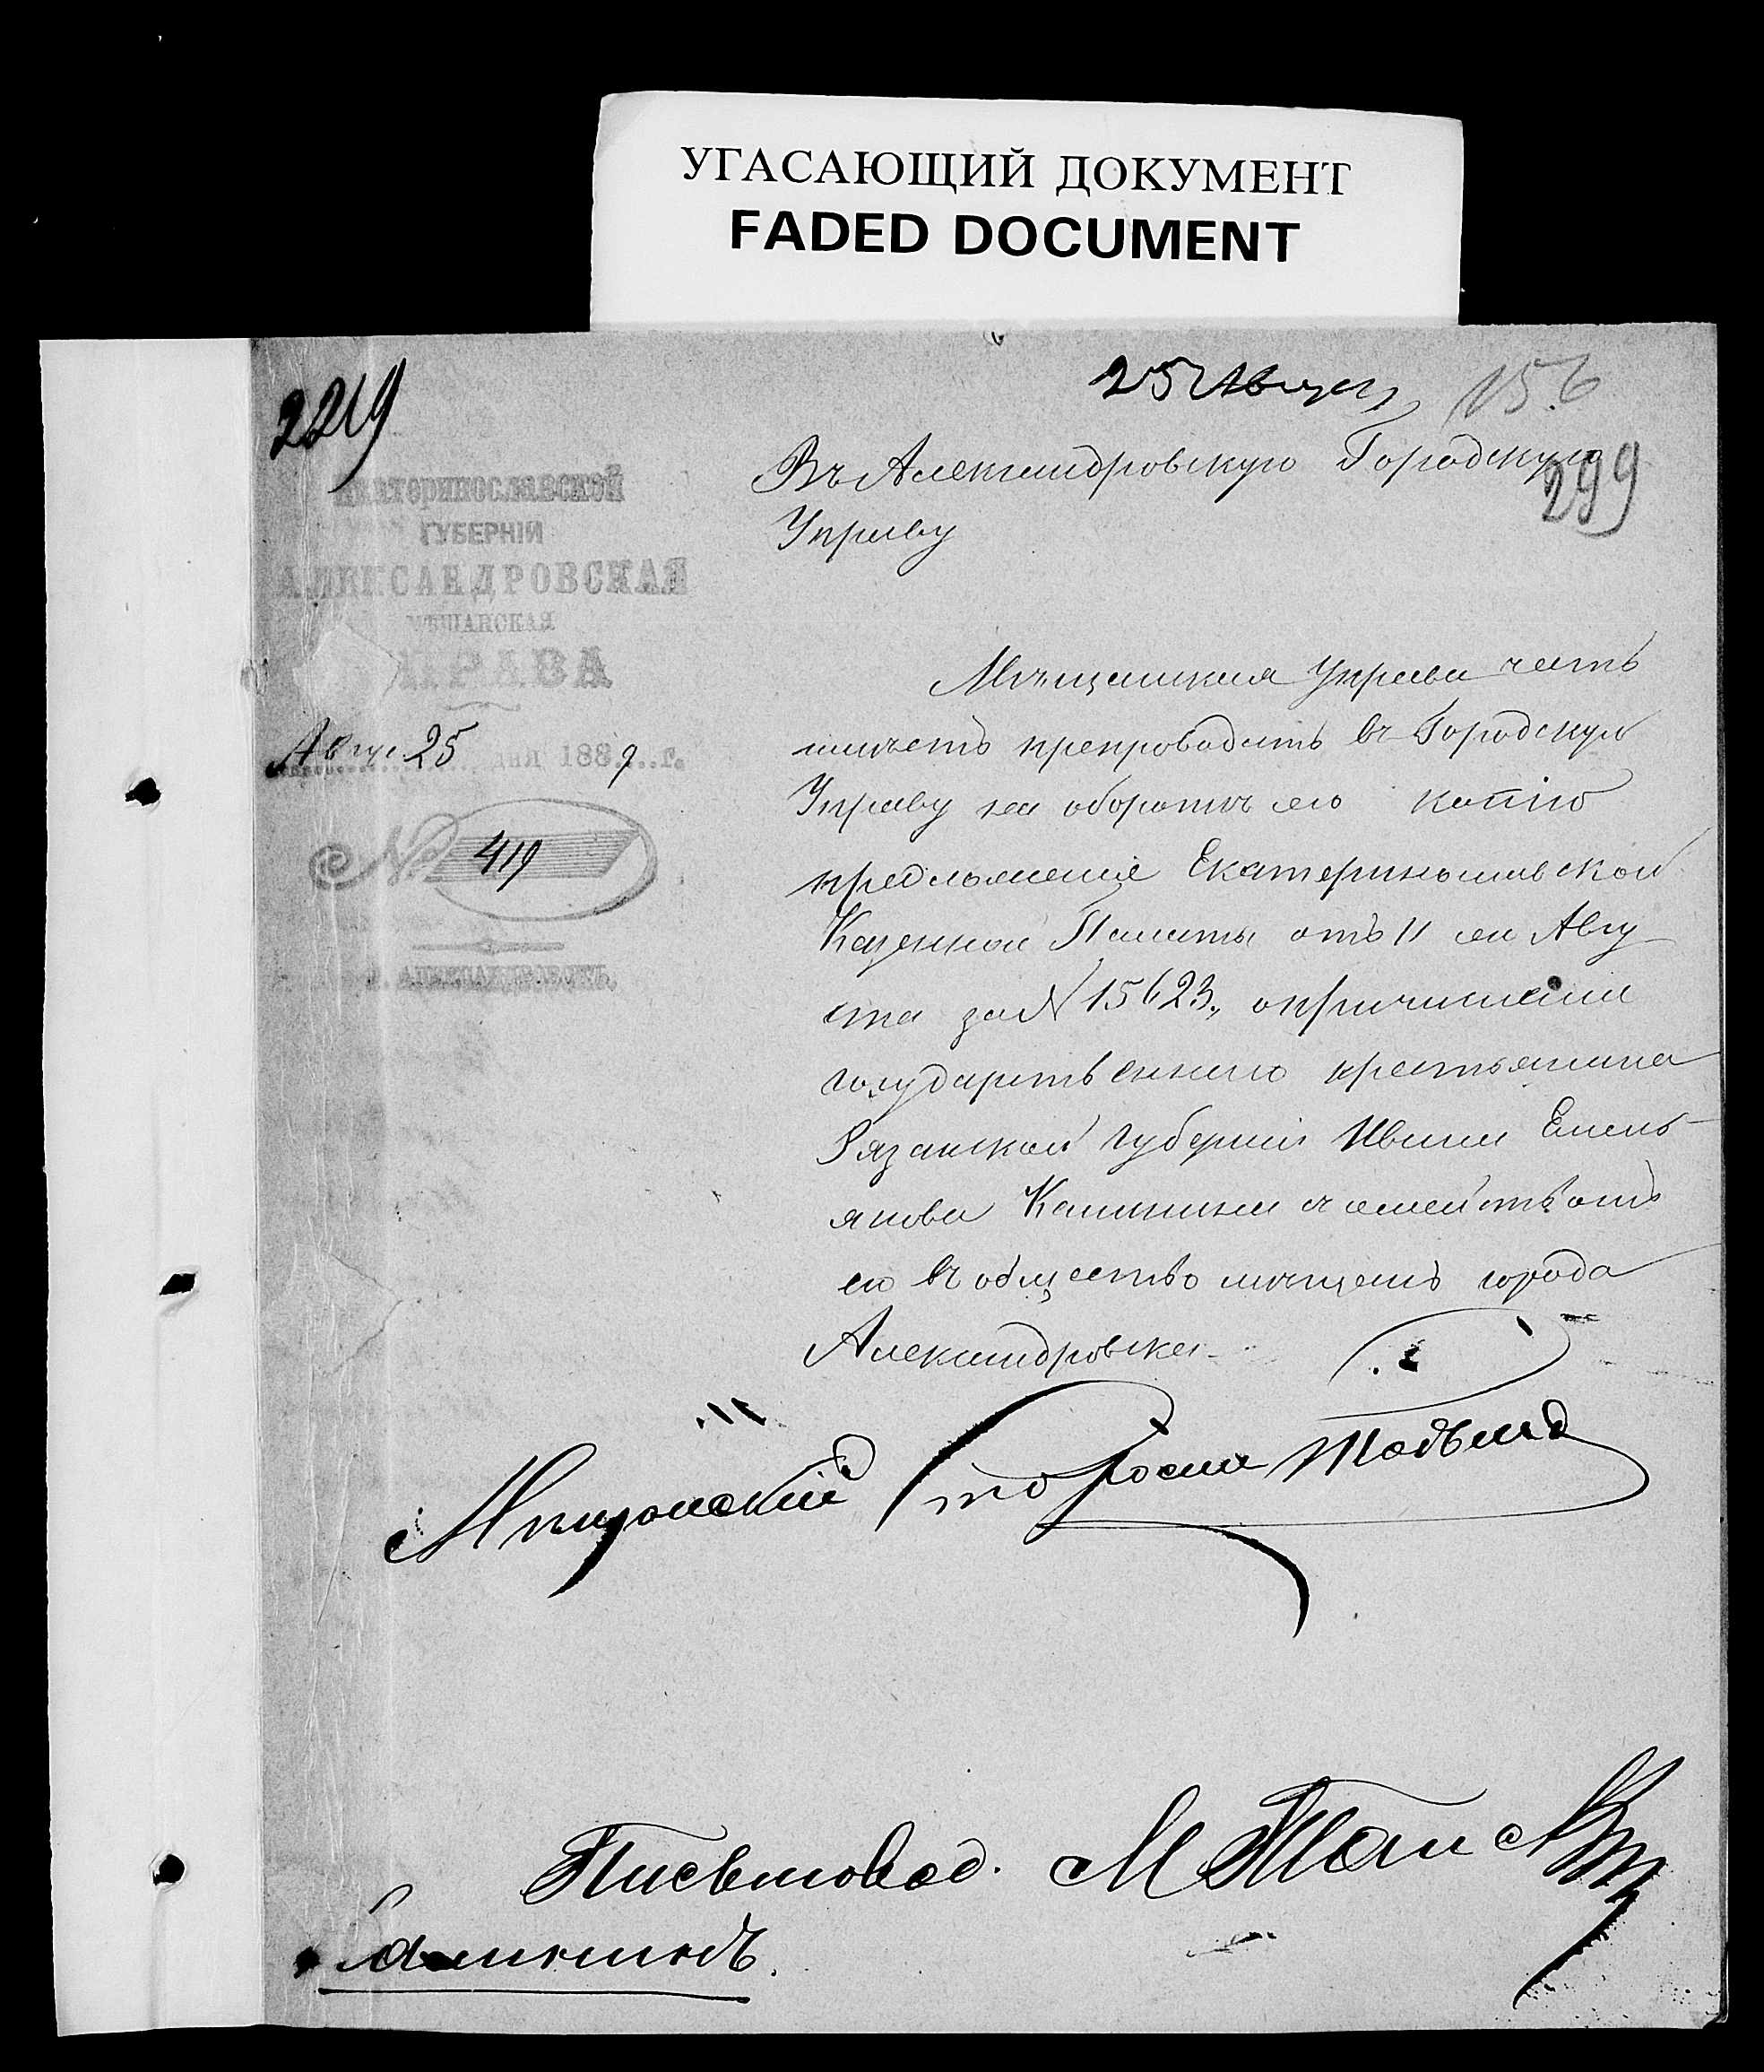 УГАСАЮЩИЙ ДОКУМЕНТ
FADED DOCUMENT
2219
25 Август
156
299
Екатеринославской
ГУБЕРНІЙ
АЛЕКСАНДРОВСКАЯ
МѢЩАНСКАЯ
УПРАВА
Авгус 25 дня 1889 г.
№ 419
Г. АЛЕКСАНДРОВСКЪ.
Въ Александровскую Городскую
Управу
Мѣщанская Управа честь
имѣетъ препроводить въ Городскую
Управу на оборотѣ сего копію
предложенія Екатеринославской
Казенной Палаты отъ 11 сего Авгу
ста за № 15623, о причислении
государственнаго крестьянина
Рязанской губерніи Ивана Емель
янова Калинкина съ семействомъ
его въ общество мѣщанъ города
Александровска
Мѣщанскій Староста
Письмовод. М